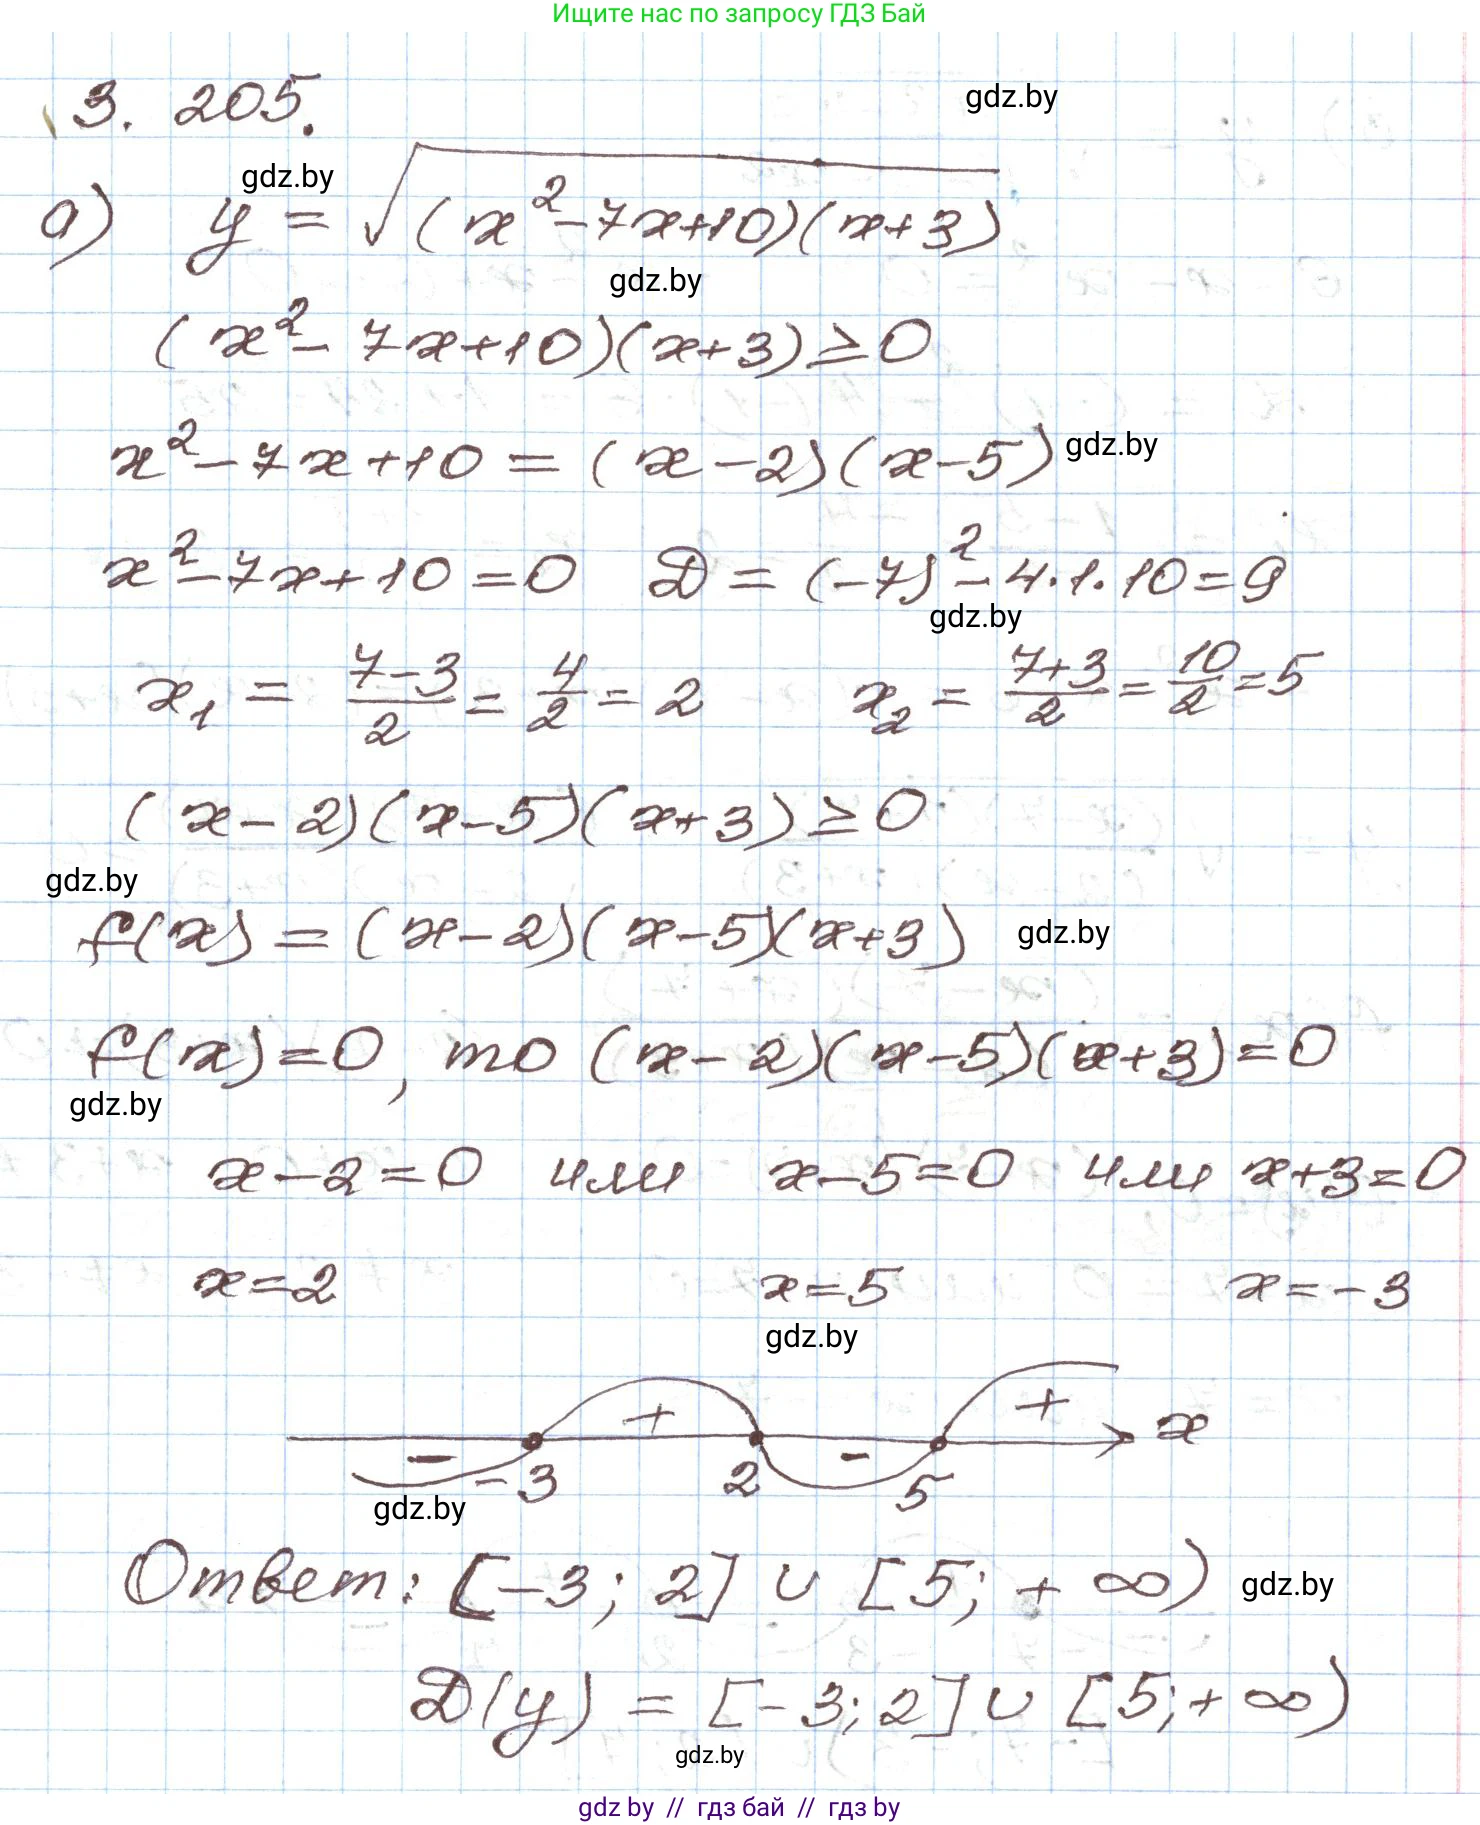 Ищите нас по запросу ГДЗ Бай
3. 205.
gdz.by
gdz.by
а) y = √(x² - 7x + 10)(x + 3)
gdz.by
(x² - 7x + 10)(x + 3) ≥ 0
x² - 7x + 10 = (x - 2)(x - 5) gdz.by
x² - 7x + 10 = 0 D = (-7)² - 4·1·10 = 9
gdz.by
x₁ = (7-3)/2 = 4/2 = 2 x₂ = (7+3)/2 = 10/2 = 5
(x - 2)(x - 5)(x + 3) ≥ 0
gdz.by
f(x) = (x - 2)(x - 5)(x + 3) gdz.by
f(x) = 0, то (x - 2)(x - 5)(x + 3) = 0
gdz.by
x - 2 = 0 или x - 5 = 0 или x + 3 = 0
x = 2 x = 5 x = -3
gdz.by
- + - + x
-3 2 5
gdz.by
Ответ: [-3; 2] ∪ [5; +∞) gdz.by
D(y) = [-3; 2] ∪ [5; +∞)
gdz.by
gdz by // гдз бай // гдз by